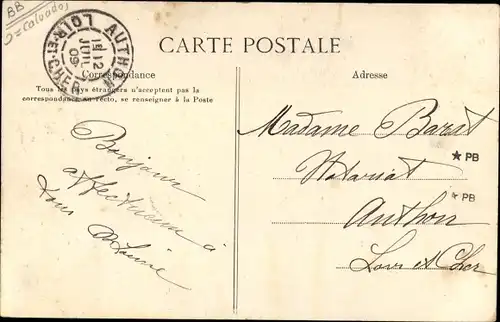 BB
(Calvados)
AUTHON
19 12
JUIL
09
LOIR-ET-CHER
CARTE POSTALE
Correspondance
Adresse
Tous les pays étrangers n'acceptent pas la
correspondance au recto, se renseigner à la Poste
Madame Barat
Notariat
Authon
Loir et Cher
Bonjour
affectueux à
tous
★ PB
★ PB